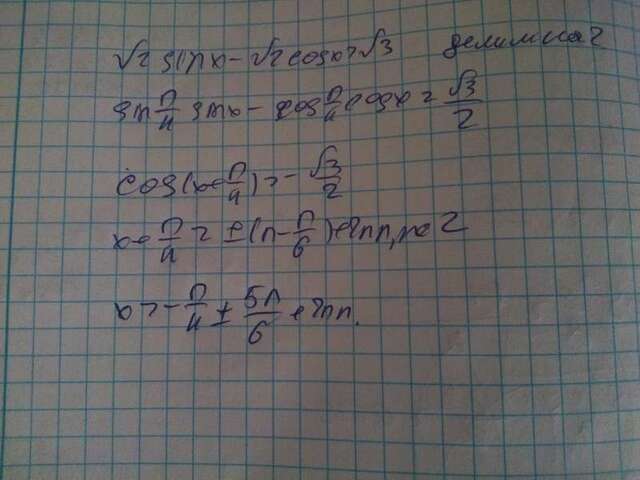 √2 sinx - √2 cosx = √3 делим на 2
sin π/4 sinx - cos π/4 cosx = √3/2
cos(x + π/4) = - √3/2
x + π/4 = ± (π - π/6) + 2πn, n ∈ Z
x = - π/4 ± 5π/6 + 2πn.